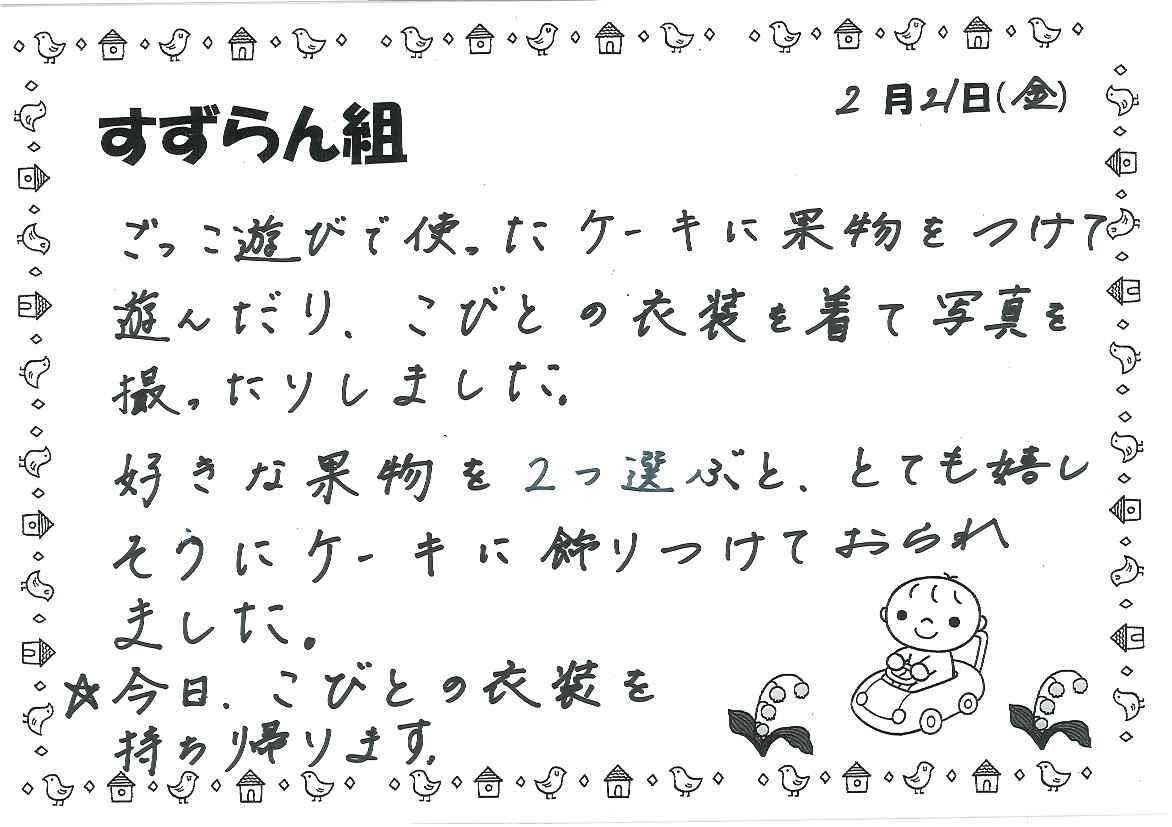 2月21日(金)
すずらん組
ごっこ遊びで使ったケーキに果物をつけて
遊んだり、こびとの衣装を着て写真を
撮ったりしました。
好きな果物を2つ選ぶと、とても嬉し
そうにケーキに飾りつけておられ
ました。
☆今日、こびとの衣装を
持ち帰ります。